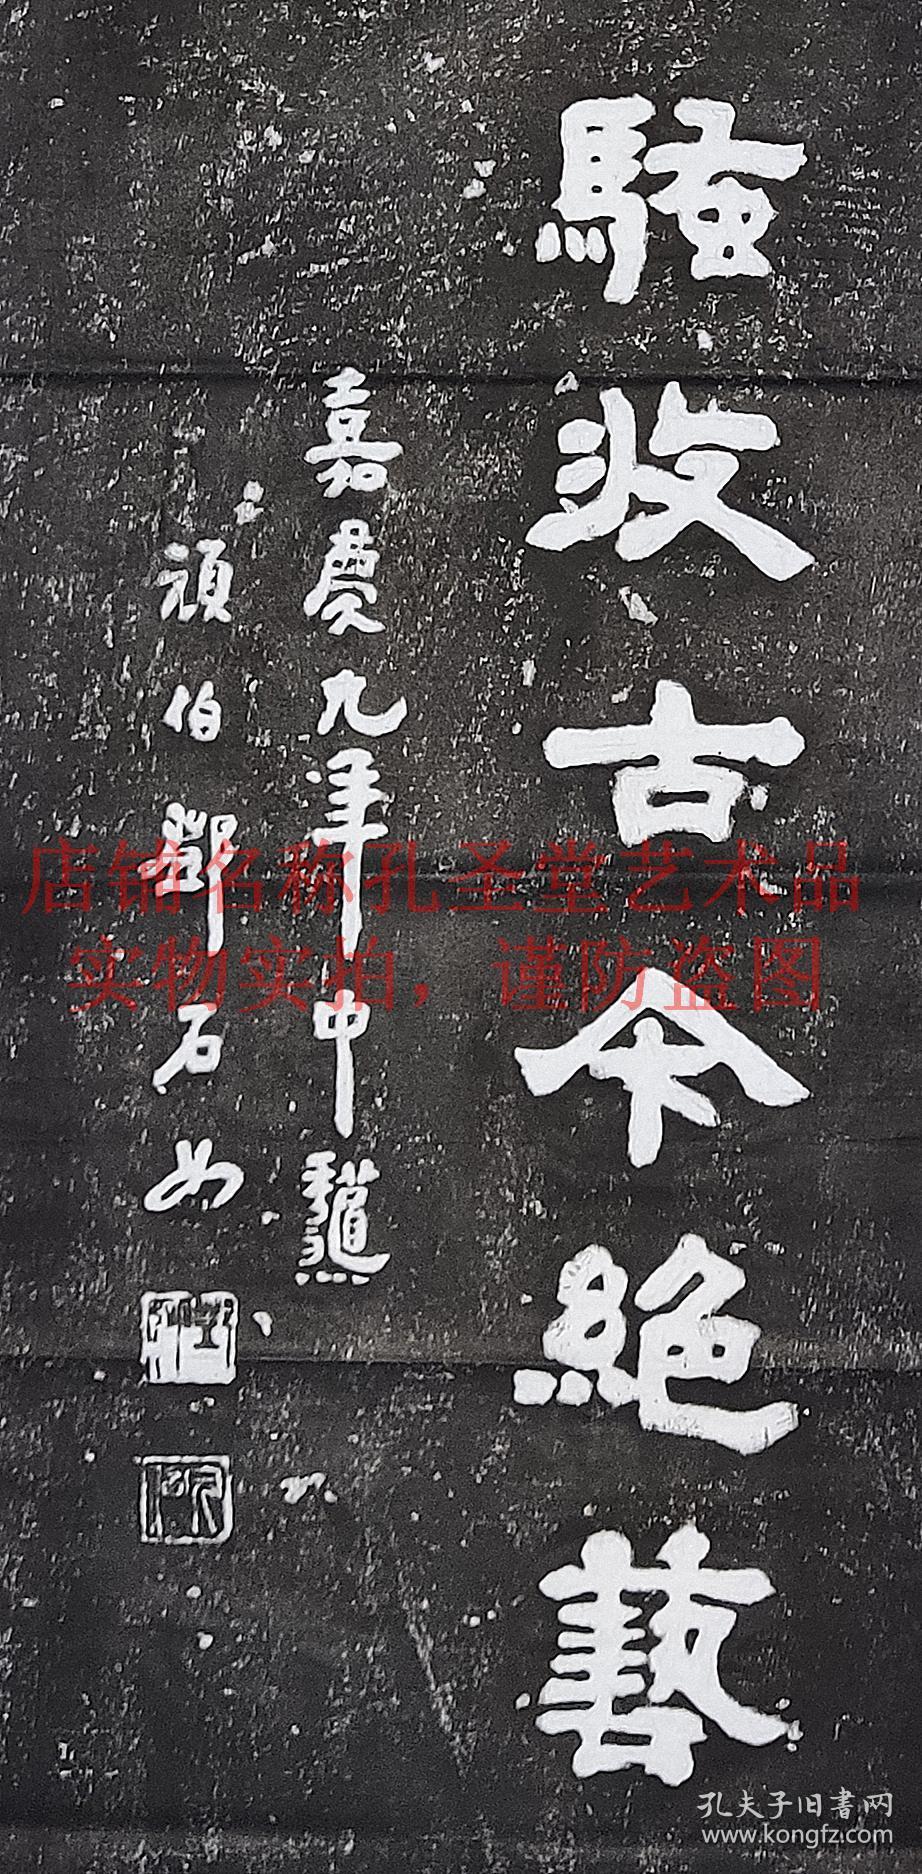 騷收古今絕藝
嘉慶九年中龝
頑伯鄧石如
店铺名称孔圣堂艺术品
实物实拍，谨防盗图
孔夫子旧書网
www.kongfz.com